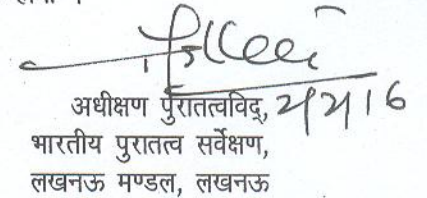 अधीक्षण पुरातत्वविद्,
भारतीय पुरातत्व सर्वेक्षण,
लखनऊ मण्डल, लखनऊ